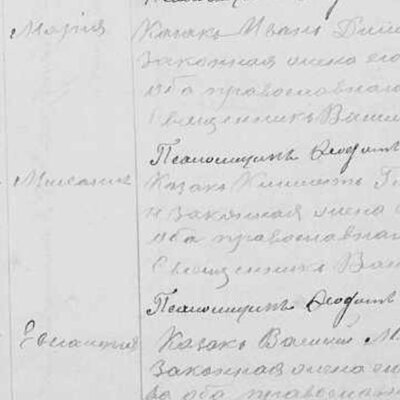 Марія
Казакъ Иванъ Дим
законная жена его
оба православнаго
Священникъ Васил
Псаломщикъ Ѳеодотъ
Казакъ
и законная жена
оба православнаго
Священникъ Вас
Псаломщикъ Ѳеодотъ
Казакъ Василій М
законная жена ег
оба православ